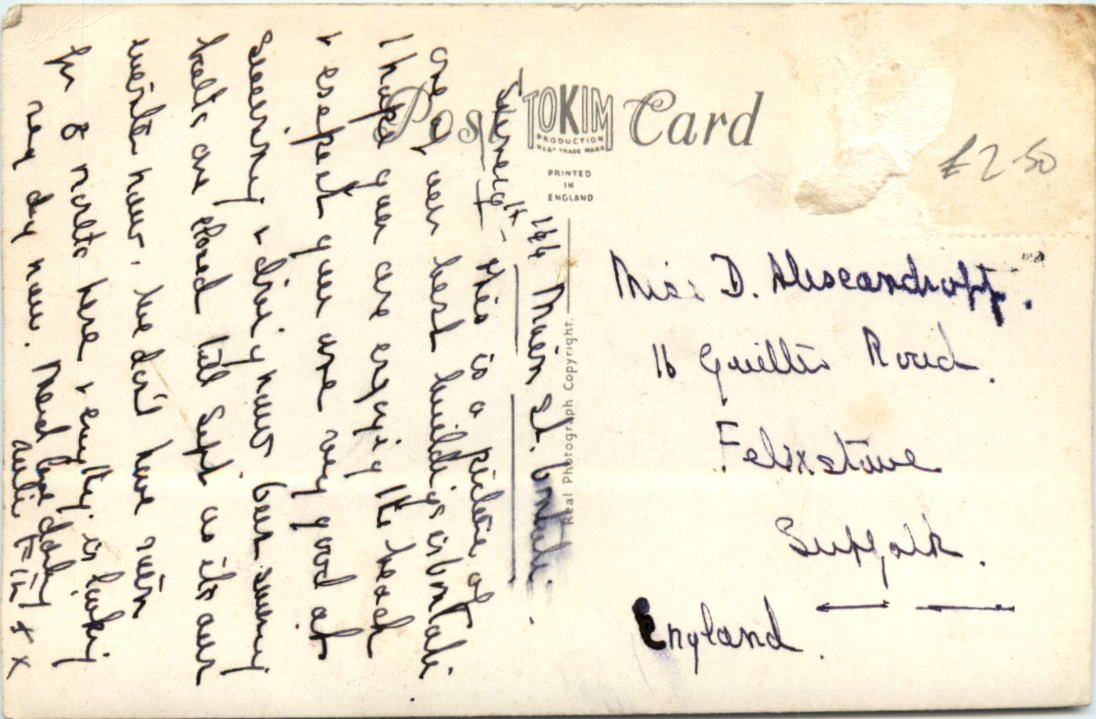 Post Card
TOKIM
PRODUCTION
REGD TRADE MARK
PRINTED
IN
ENGLAND
Real Photograph Copyright.
£2-50
144 Main St. Umtali.
This is a picture of
one of our best buildings in Umtali
I hope you are enjoying the beach
& expect you are very good at
swimming & diving now. Our swimming
baths are closed till Sept as its our
winter now, we don't have rain
for 8 months here & everything is looking
very dry now. Much love darling
x x
Miss D. Alexandroff.
16 Quilter Road.
Felixstowe
Suffolk.
England.